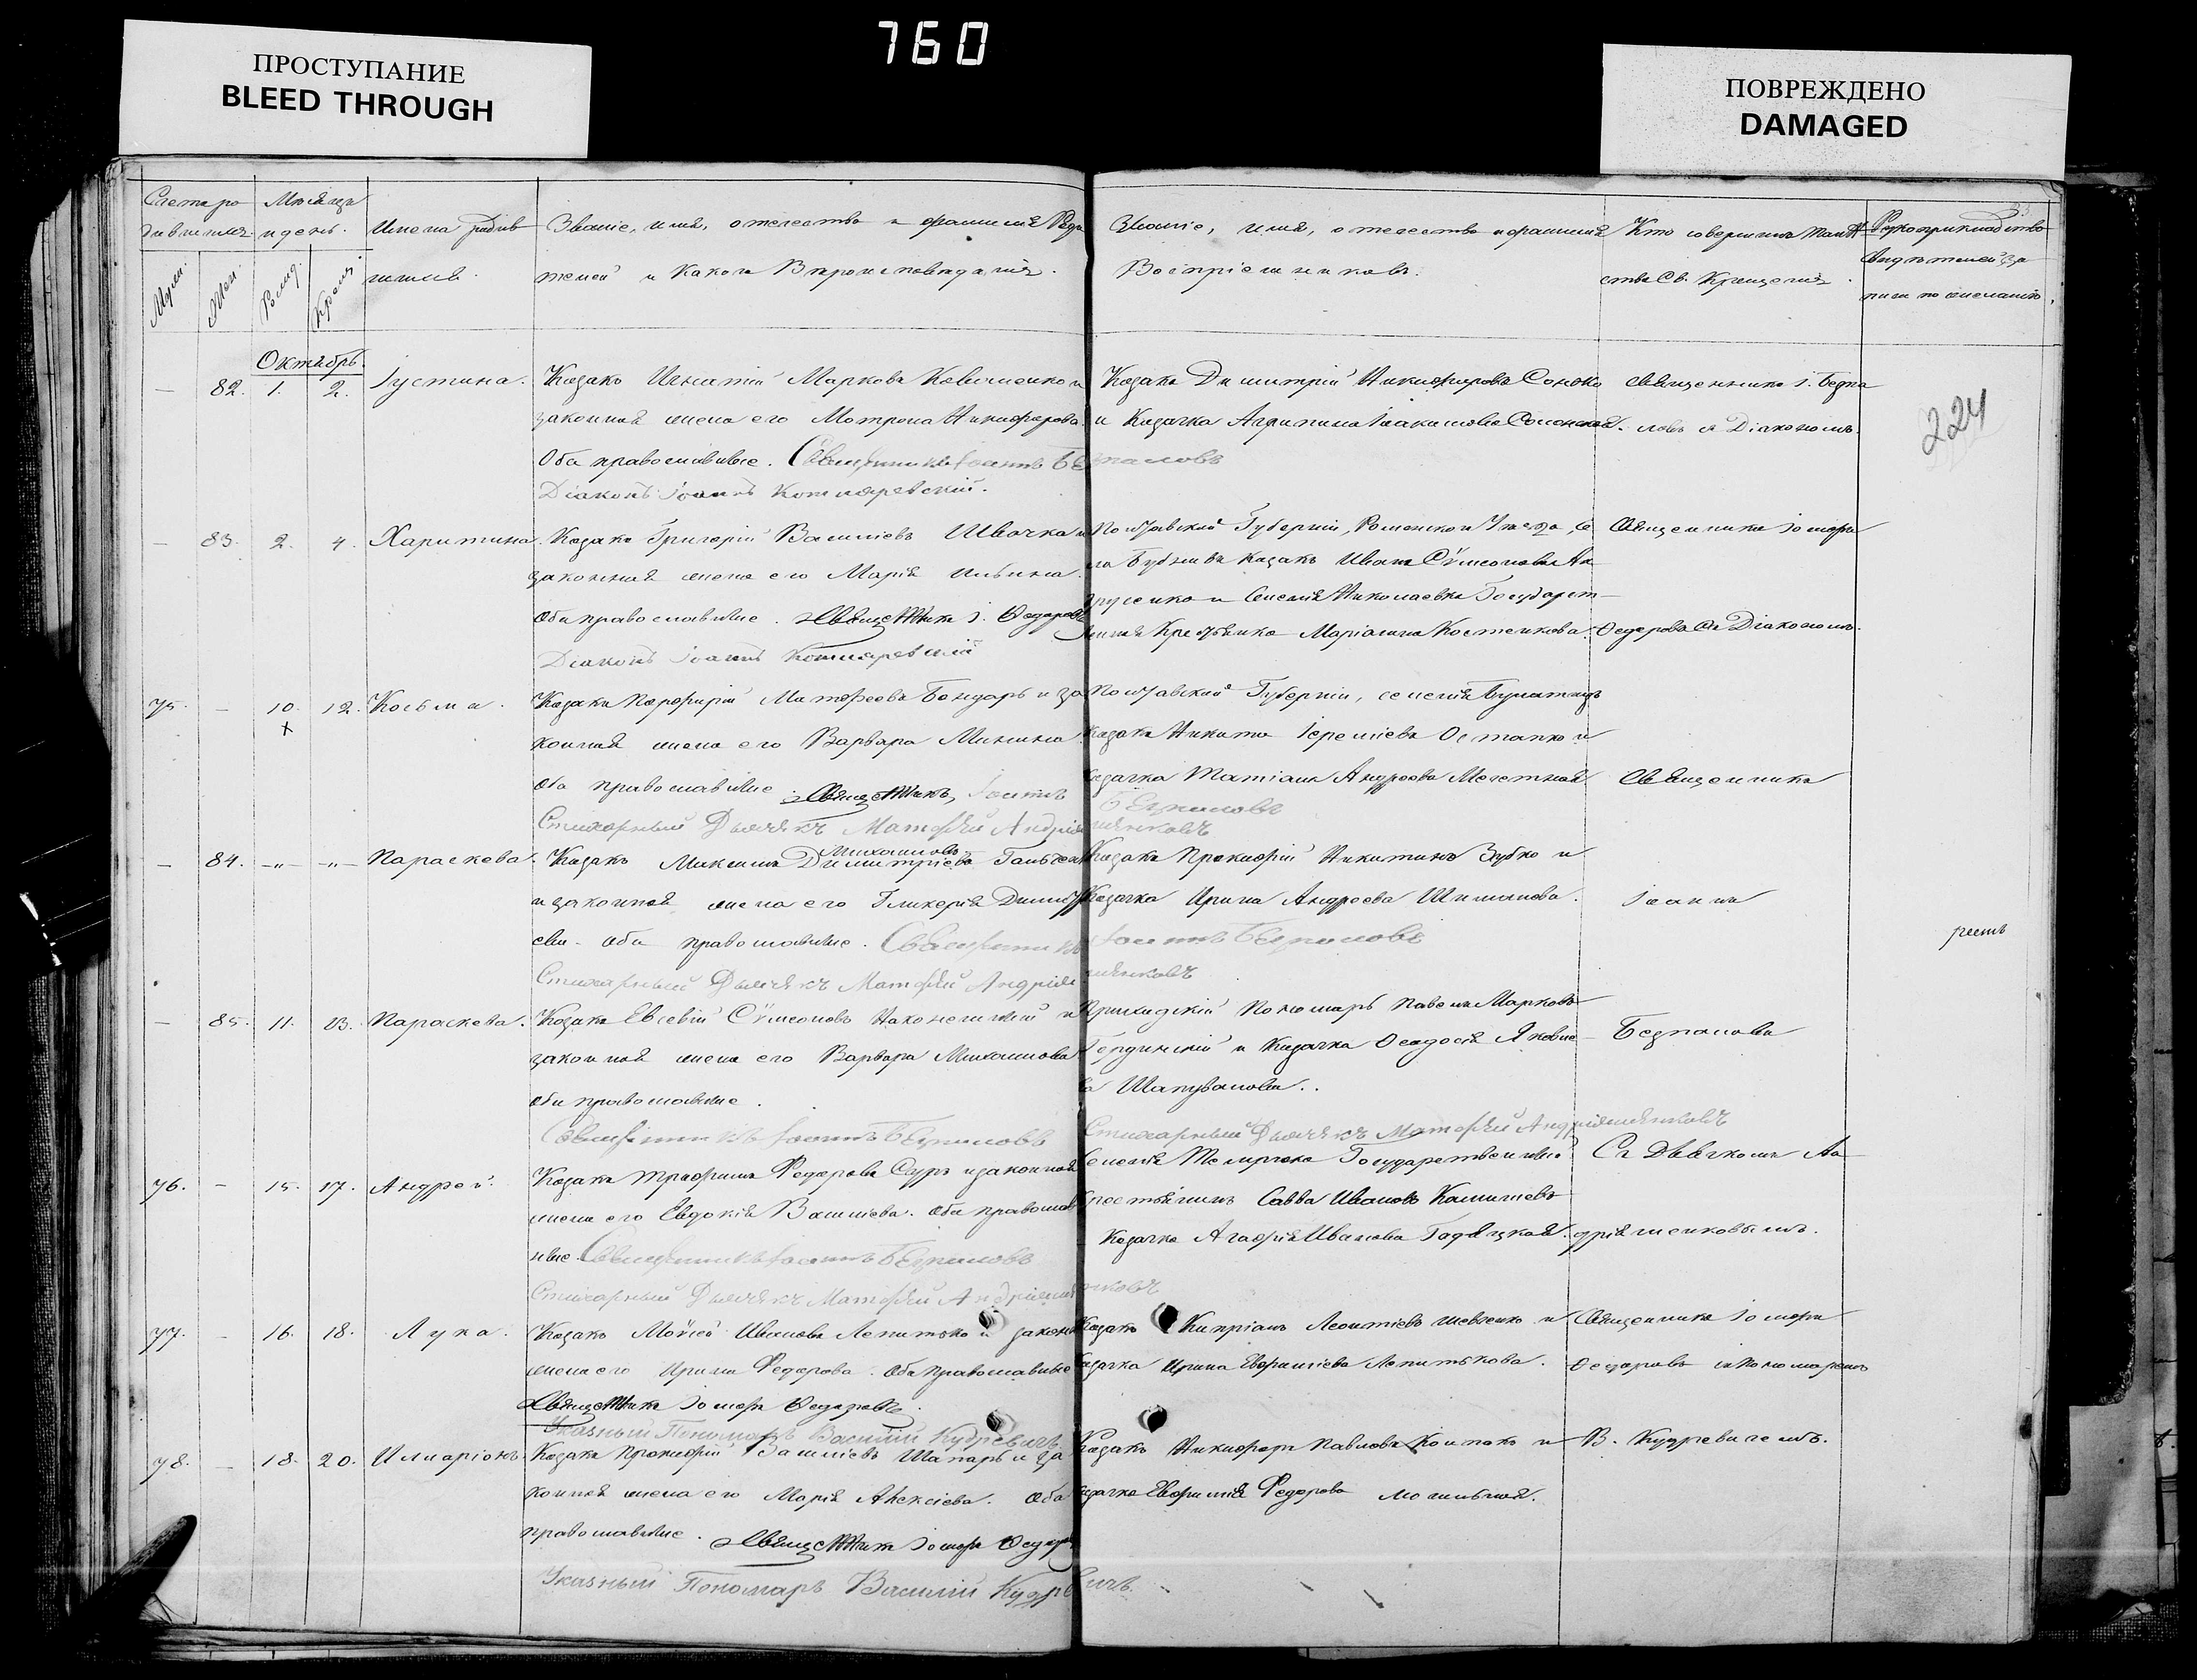 760
ПРОСТУПАНИЕ
BLEED THROUGH
ПОВРЕЖДЕНО
DAMAGED
Счетъ ро
дившихся
Муж.
Жен.
Мѣсяцъ
и день.
Рожд.
Крещ.
Имена родив
шихся.
Званіе, имя, отечество и фамилія Роди
телей и какого Вѣроисповѣданія.
Званіе, имя, отечество и фамилія
Воспріемниковъ.
Кто совершалъ таин
ство Св. Крещенія.
Рукоприкладство
свидѣтелей за
писи по желанію.
224
Октябрь.
— 82. 1. 2. Іустина.
Козакъ Игнатій Марковъ и
законная жена его Мотрона Никифорова.
Оба православные. Священникъ Іоаннъ Безпаловъ
Діаконъ Іоаннъ Котляревскій.
Козакъ Димитрій Никифоровъ
и Казачка Агрипина Іоакимова
Священникъ І. Безпа
ловъ съ Діакономъ.
— 83. 2. 4. Харитина.
Козакъ Григорій Василіевъ Швачка и
законная жена его Марія Ильина.
Оба православные. Священникъ І. Ѳедоровъ
Діаконъ Іоаннъ Котляревскій
Полтавской Губерніи, Роменского Уезда, се
ла казакъ Иванъ Сѵмеоновъ Ан
и Селенія Николаевки Государст
Маріанна Костенкова.
Священникъ Іосифъ
Ѳедоровъ съ Діакономъ.
75. — 10. 12. Косьма.
Козакъ Порфирій Матфеевъ Бондарь и за
конная жена его Варвара Минина
Оба православные Священникъ Іоаннъ Безпаловъ
Стихарный Дьячекъ Матфѣй Андріяшенковъ
Полтавской Губерніи, селенія
казакъ Никита Іереміевъ Остапко и
казачка Татіана Андреева
Священникъ
— 84. —„— —„— Параскева.
Михаиловъ
Козакъ Максимъ Димитріевъ
и законная жена его Гликерія Димитрі
ева. Оба православные. Священникъ Іоаннъ Безпаловъ
Стихарный Дьячекъ Матфѣй Андріяшенковъ
Казакъ Прокофій Никитинъ Зубко и
Казачка Ирина Андреева Шиманова.
Іоаннъ
— 85. 11. 13. Параскева.
Козакъ Евсевій Сѵмеоновъ и
законная жена его Варвара Михаилова
оба православные.
Священникъ Іоаннъ Безпаловъ
Стихарный Дьячекъ Матфѣй Андріяшенковъ
Приходскій Пономарь Павелъ Марковъ
и Казачка Ѳеодосія Яковле
ва Шаповалова.
Безпаловъ
76. — 15. 17. Андрей.
Козакъ Трофимъ Федоровъ и законная
жена его Евдокія Василіева. Оба православ
ные. Священникъ Іоаннъ Безпаловъ
Стихарный Дьячекъ Матфѣй Андріяшенковъ
Селенія Государственный
крестьянинъ Савва Ивановъ
Козачка Агафія Ивановна Гадяцкая.
Съ Дьячкомъ Ан
дріяшенковымъ.
77. — 16. 18. Лука.
Козакъ Мойсей Ивановъ Лепитько и законн
жена его Ирина Федорова. Оба православные
Священникъ Іосифъ Ѳедоровъ.
Указный Пономарь Василій Кудревичъ.
Казакъ Кипріанъ Леонтіевъ Шевченко и
казачка Ирина Евфиміева Лепитькова.
Священникъ Іосифъ
Ѳедоровъ съ Пономаремъ
78. — 18. 20. Иларіонъ.
Козакъ Прокофій Василіевъ Шапарь и за
конная жена его Марія Алексіева. Оба
православные. Священникъ Іосифъ Ѳедоровъ
Указный Пономарь Василій Кудревичъ.
Казакъ Никифоръ Павловъ и
казачка Евфимія Федорова Могильная.
В. Кудревичемъ.